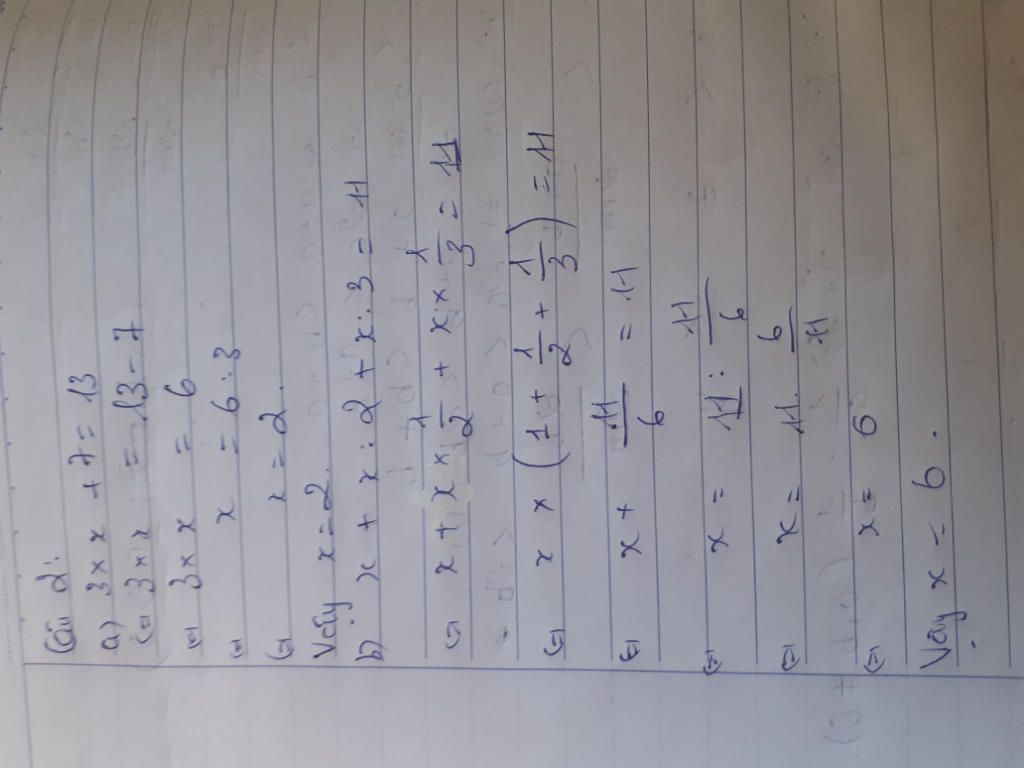 Câu d:
a) 3 × x + 7 = 13
(=) 3 × x = 13 - 7
(=) 3 × x = 6
(=) x = 6 : 3
(=) x = 2.
Vậy x = 2
b) x + x : 2 + x : 3 = 11
(=) x + x × 1/2 + x × 1/3 = 11
(=) x × (1 + 1/2 + 1/3) = 11
(=) x + 11/6 = 11
(=) x = 11 : 11/6
(=) x = 11 . 6/11
(=) x = 6
Vậy x = 6.